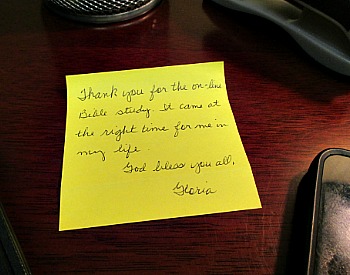 Thank you for the on-line
Bible study. It came at
the right time for me in
my life.
God bless you all,
Gloria